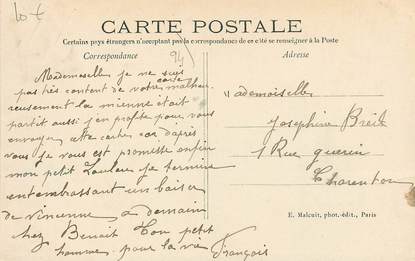 CARTE POSTALE
Certains pays étrangers n'acceptant pas la correspondance de ce côté se renseigner à la Poste
Correspondance
Adresse
94
Mademoiselle je ne suis
pas très content de votre carte malheu
reusement la mienne était
partit aussi j'en profite pour vous
envoyer cette carte car d'après
vous je vous est promise enfin
mon petit je termine
en t'embrassant un baiser
de vincenne a demain
chez Benoit ton petit
homme pour la vie
François
Mademoiselle
Joséphine Breil
1 Rue guerin
Charenton
E. Malcuit, phot. édit., Paris